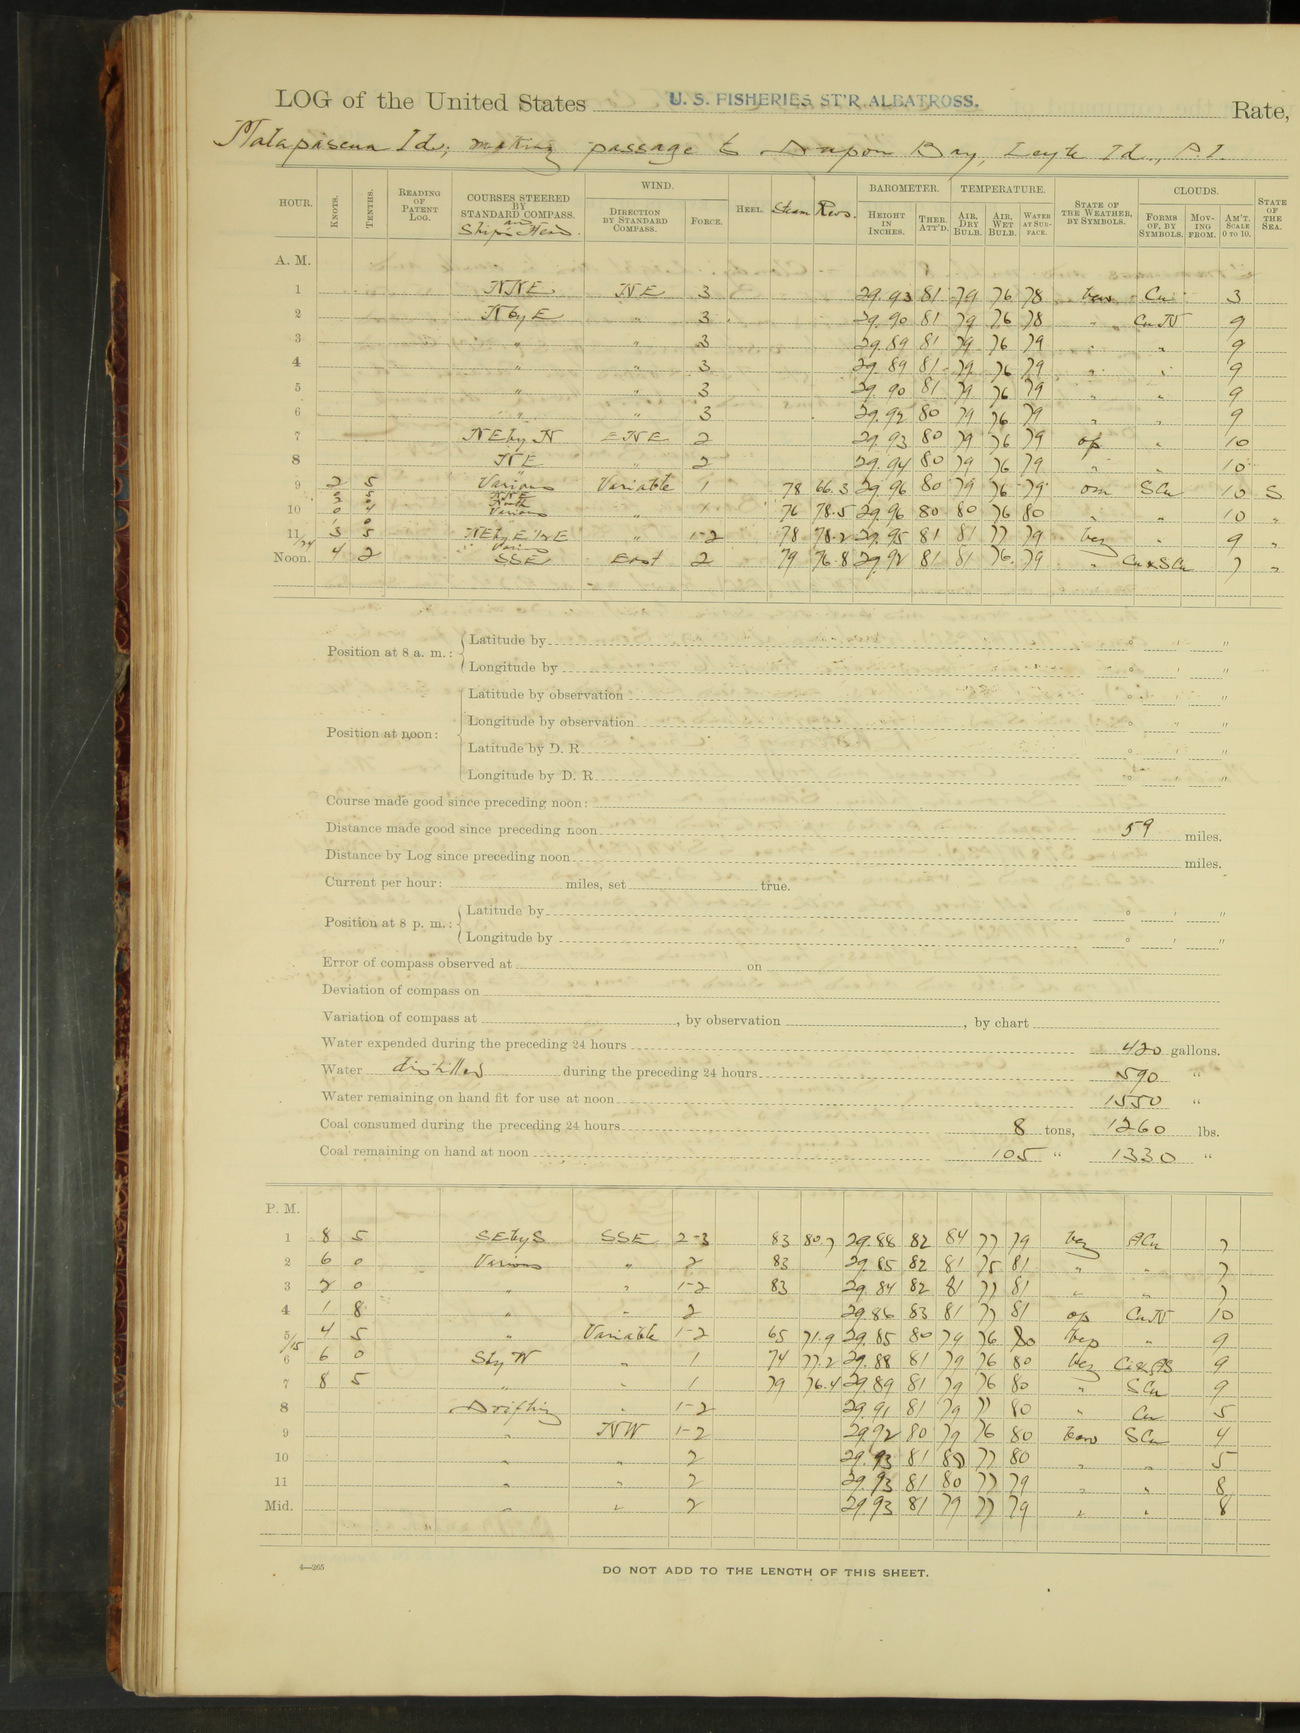 LOG of the United States U. S. FISHERIES ST'R ALBATROSS. Rate,
making passage to Bay, Leyte Id., P.I.
HOUR. KNOTS. TENTHS. READING OF PATENT LOG. COURSES STEERED BY STANDARD COMPASS. and Ship's Head. WIND. DIRECTION BY STANDARD COMPASS. FORCE. HEEL. Steam Revs. BAROMETER. HEIGHT IN INCHES. THER. ATT'D. TEMPERATURE. AIR, DRY BULB. AIR, WET BULB. WATER AT SURFACE. STATE OF THE WEATHER, BY SYMBOLS. CLOUDS. FORMS OF, BY SYMBOLS. MOVING FROM. AM'T. SCALE 0 TO 10. STATE OF THE SEA.
A. M.
1 NNE NE 3 29.93 81 79 76 78 Cu 3
2 N by E " 3 29.90 81 79 76 78 " Cu N 9
3 " " 3 29.89 81 79 76 79 " " 9
4 " " 3 29.89 81 79 76 79 " " 9
5 " " 3 29.90 81 79 76 79 " " 9
6 " " 3 29.92 80 79 76 79 " " 9
7 NE by N ENE 2 29.93 80 79 76 79 op " 10
8 NE " 2 29.94 80 79 76 79 " " 10
9 2 5 Various Variable 1 78 66.3 29.96 80 79 76 79 om SCu 10 S
10 0 4 Various " 76 78.5 29.96 80 80 76 80 " " 10 "
11 3 5 NE by E 1/2 E " 1-2 78 78.2 29.95 81 81 77 79 bcz " 9 "
Noon. 4 2 SSE East 2 79 76.8 29.92 81 81 76 79 " Cu & SCu 7 "
Position at 8 a. m.: Latitude by ° ' "
Longitude by ° ' "
Position at noon: Latitude by observation ° ' "
Longitude by observation ° ' "
Latitude by D. R. ° ' "
Longitude by D. R. ° ' "
Course made good since preceding noon:
Distance made good since preceding noon 59 miles.
Distance by Log since preceding noon miles.
Current per hour: miles, set true.
Position at 8 p. m.: Latitude by ° ' "
Longitude by ° ' "
Error of compass observed at on
Deviation of compass on
Variation of compass at , by observation , by chart
Water expended during the preceding 24 hours 420 gallons.
Water distilled during the preceding 24 hours 590 "
Water remaining on hand fit for use at noon 1550 "
Coal consumed during the preceding 24 hours 8 tons, 1260 lbs.
Coal remaining on hand at noon 105 " 1330 "
P. M.
1 8 5 SE by S SSE 2-3 83 80.7 29.88 82 84 77 79 bcz ACu 7
2 6 0 Various " 2 83 29.85 82 81 75 81 " " 7
3 2 0 " " 1-2 83 29.84 82 81 77 81 " " 7
4 1 8 " " 2 29.86 83 81 77 81 op Cu N 10
5/15 4 5 " Variable 1-2 65 71.9 29.85 80 79 76 80 bcp " 9
6 6 0 S by W " 1 74 77.2 29.88 81 79 76 80 bcz 9
7 8 5 " " 1 79 76.4 29.89 81 79 76 80 " SCu 9
8 Drifting " 1-2 29.91 81 79 77 80 " Cu 5
9 " NW 1-2 29.92 80 79 76 80 SCu 4
10 " " 2 29.93 81 80 77 80 " " 5
11 " " 2 29.93 81 80 77 79 " " 8
Mid. " " 2 29.93 81 79 77 79 " " 8
4—265 DO NOT ADD TO THE LENGTH OF THIS SHEET.